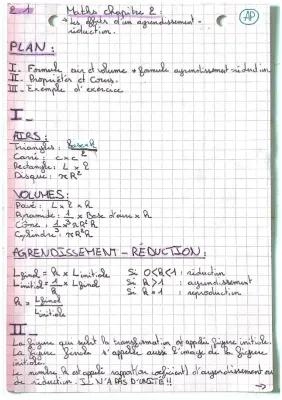 Maths chapitre 2 :
Les effets d'un agrendissement -
réduction.
AP
PLAN :
I - Formule aire et volume + formule agrendissement réduction
II - Propriétés et Cours.
III - Exemple d'exercice
I -
AIRS :
Triangles : Base x h / 2
Carré : c x c
Rectangle : L x l
Disque : π R²
VOLUMES :
Pavé : L x l x h
Pyramide : 1/3 x Base d'aire x h
Cône : 1/3 x π R² h
Cylindre : π R² h
AGRENDISSEMENT - RÉDUCTION :
Lfinal = k x Linitiale Si 0<k<1 : réduction
Linitial = 1/k x Lfinal Si k>1 : agrendissement
Si k=1 : reproduction
k = Lfinal / Linitiale
II -
La figure que subit la transformation est appelée figure initiale.
La figure finale s'appelle aussi l'image de la figure
initiale.
Le nombre k est appelé rapport (ou coeficient) d'agrendissement ou
de réduction. IL N'A PAS D'UNITÉ !!